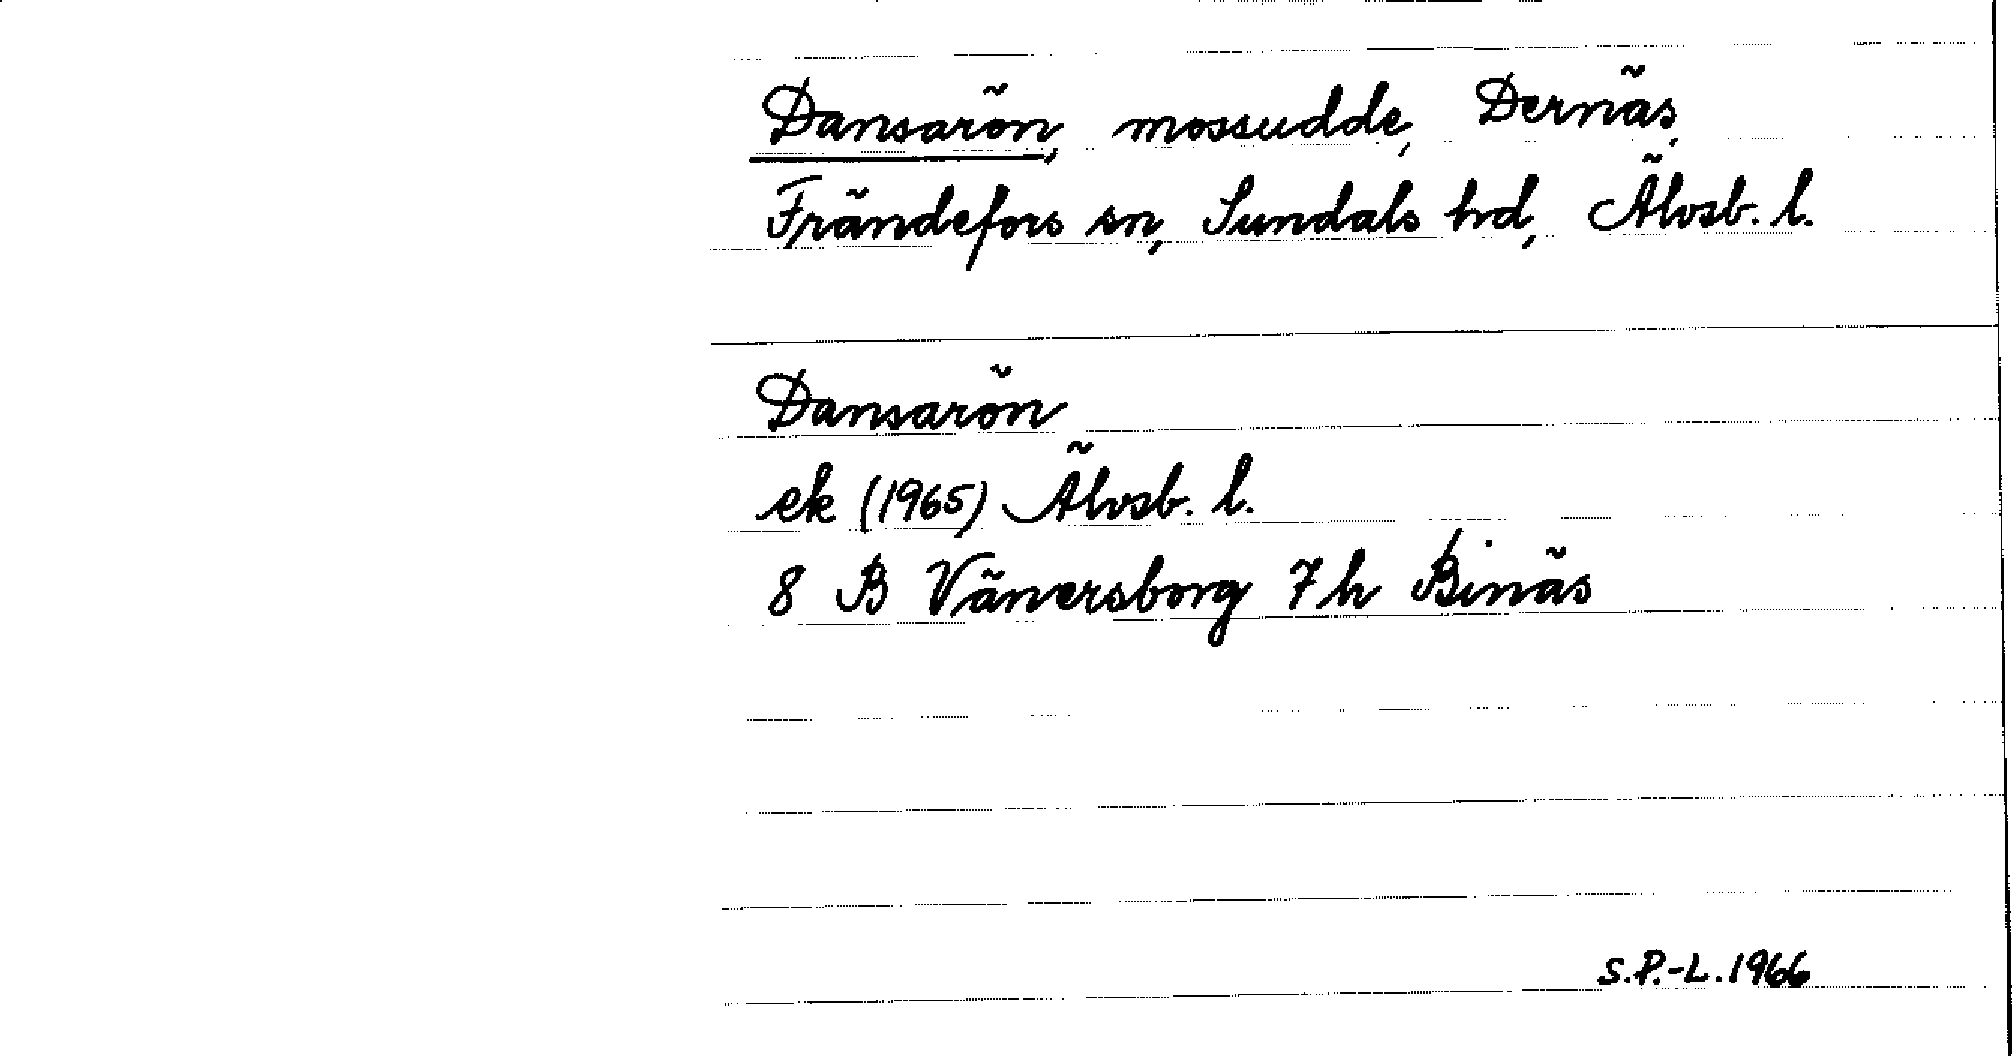 Dansarön, mossudde, Dernäs,
Frändefors sn, Sundals hd, Älvsb. l.
Dansarön
ek (1965) Älvsb. l.
8 B Vänersborg 7 h Binäs
S.P.-L. 1966